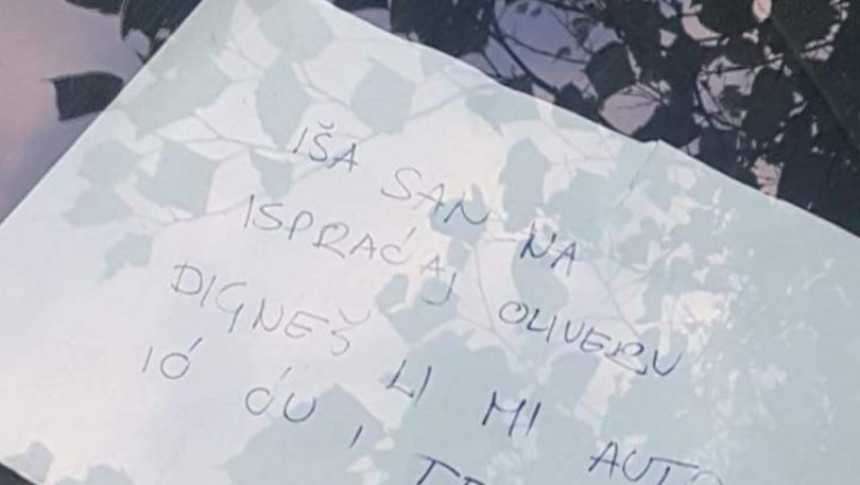 IŠA SAN NA
ISPRAĆAJ OLIVERU
DIGNEŠ LI MI AUTO
IÓ ĆU I